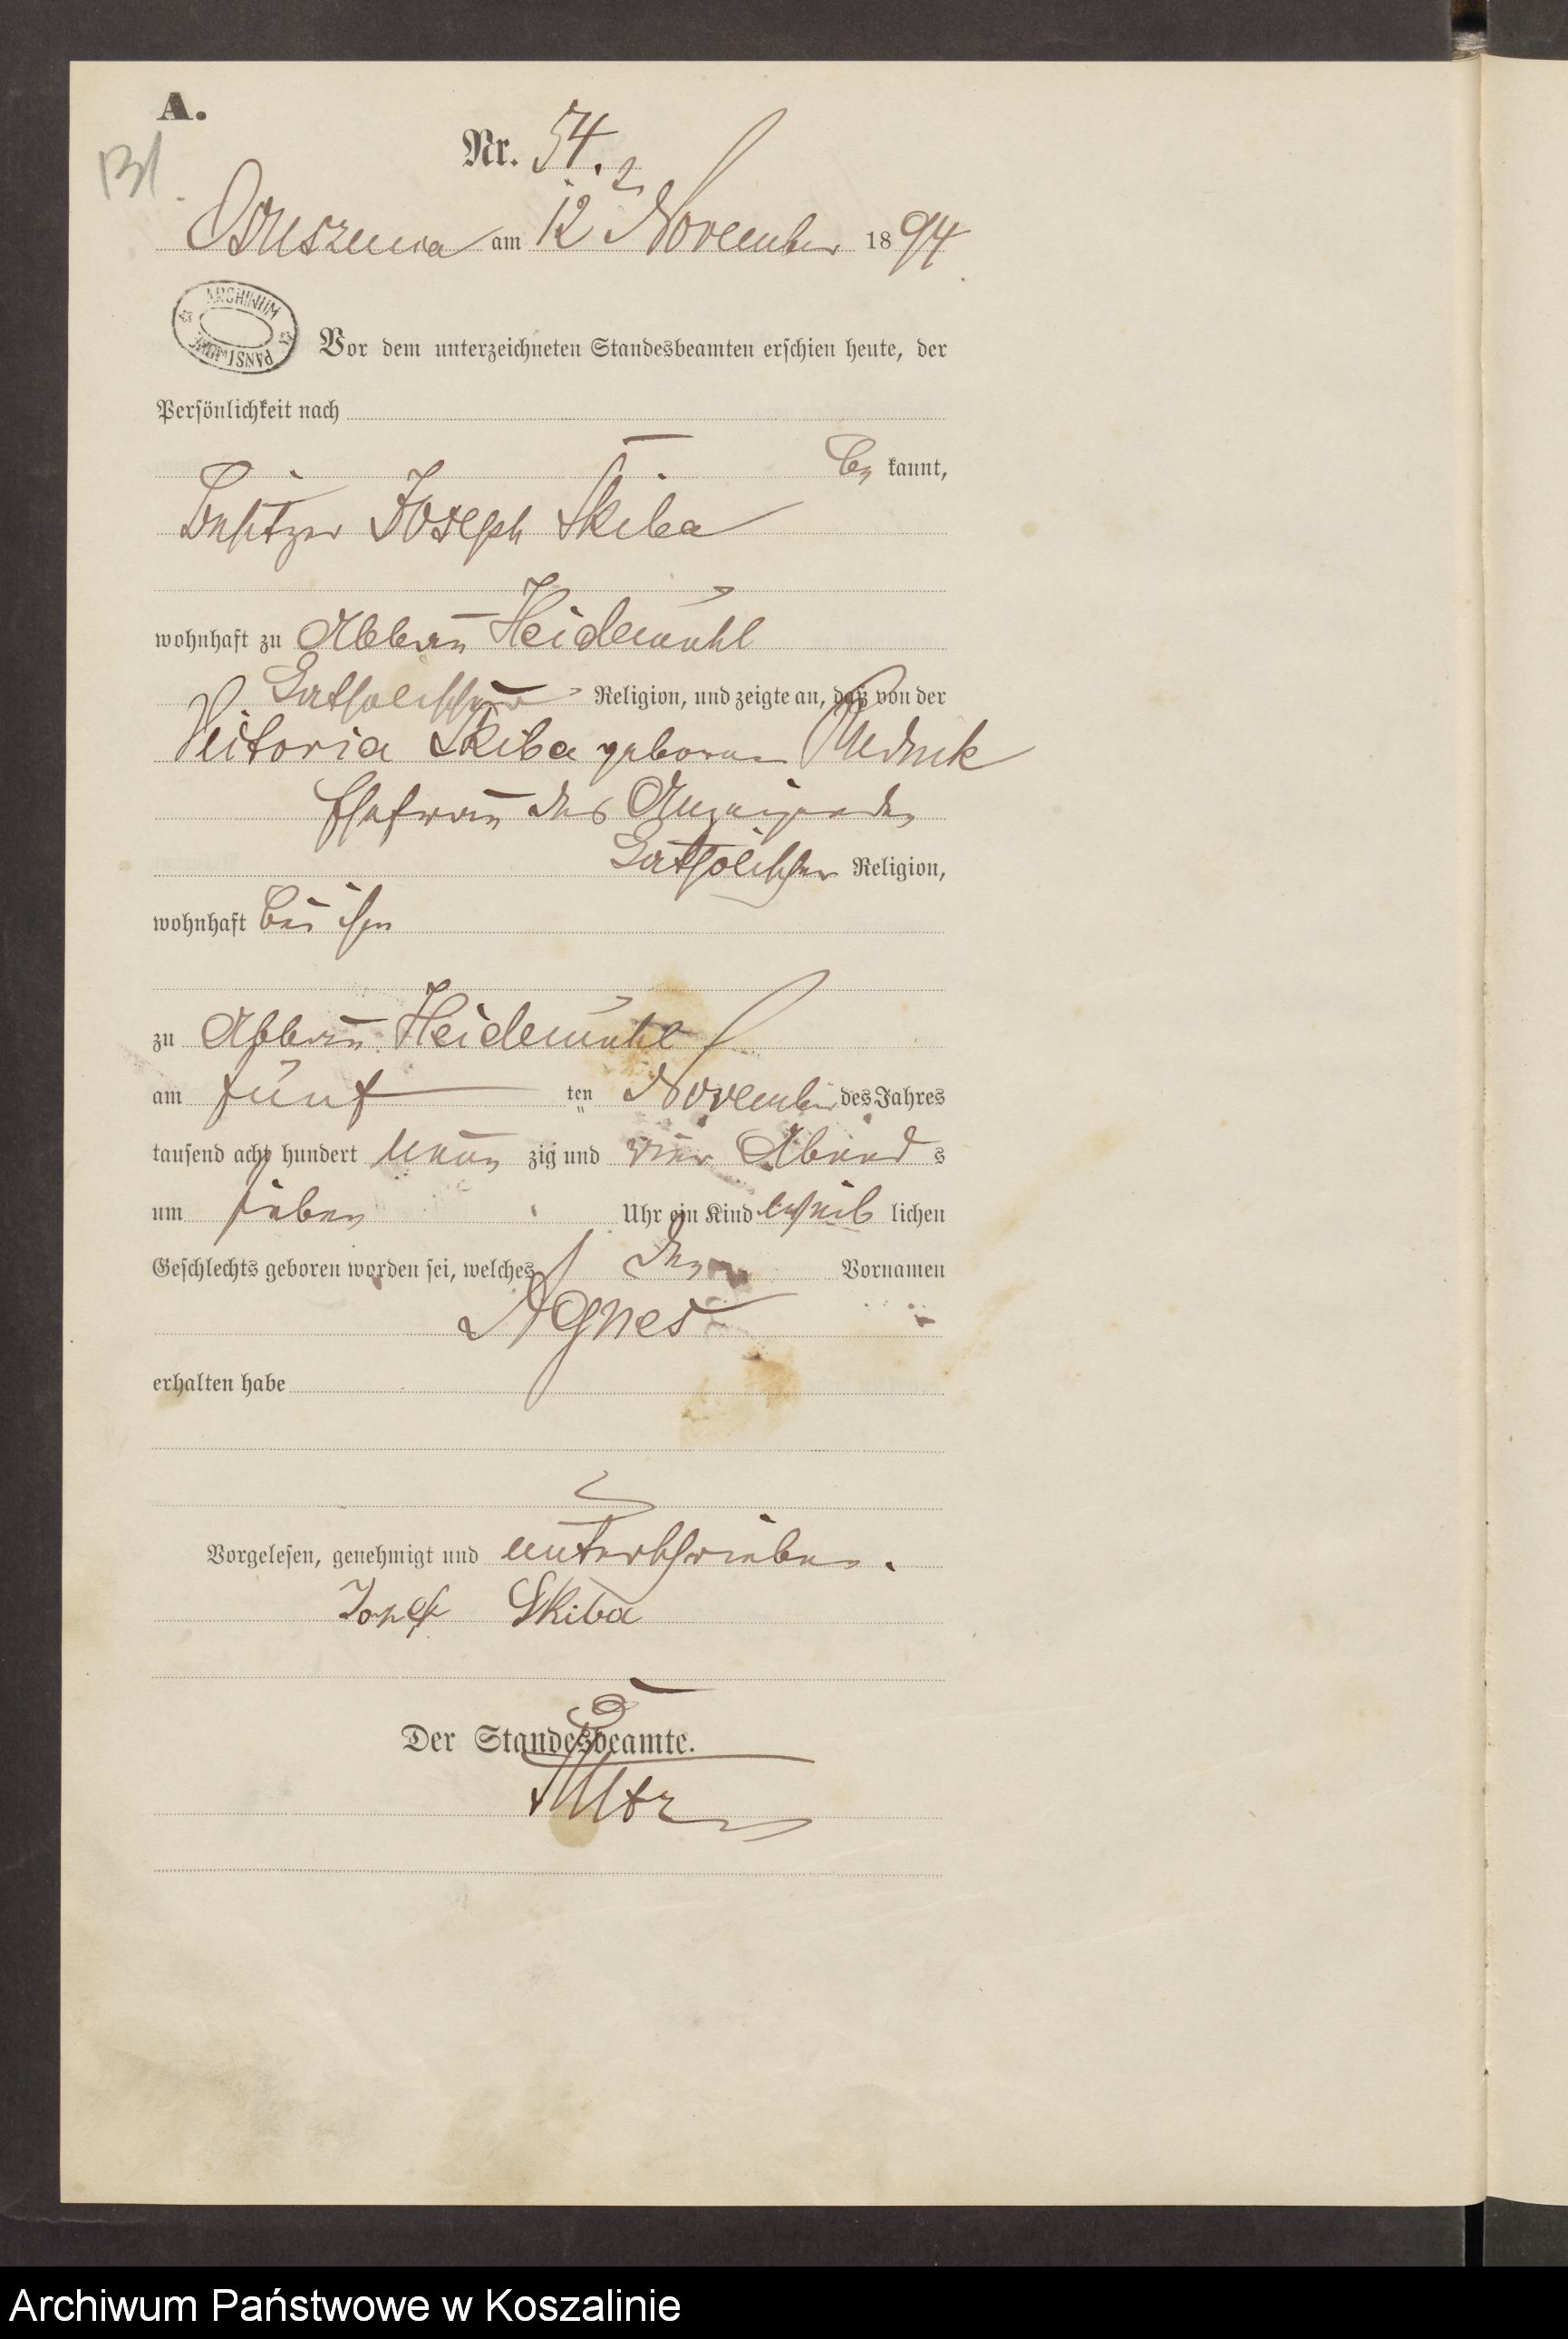 A.
131
Nr. 54.
Osuszenica am 12 November 1894
ARCHIWUM PAŃSTWOWE
Vor dem unterzeichneten Standesbeamten erschien heute, der
Persönlichkeit nach
be kannt,
Besitzer Joseph Skiba
wohnhaft zu Abbau Heidemühl
katholischer Religion, und zeigte an, daß von der
Victoria Skiba geborene
Ehefrau des Anzeigenden
katholischer Religion,
wohnhaft bei ihm
zu Abbau Heidemühl
am fünf ten November des Jahres
tausend acht hundert neun zig und vier Abend s
um sieben Uhr ein Kind weib lichen
Geschlechts geboren worden sei, welches den Vornamen
Agnes
erhalten habe
Vorgelesen, genehmigt und unterschrieben.
Josef Skiba
Der Standesbeamte.
Archiwum Państwowe w Koszalinie